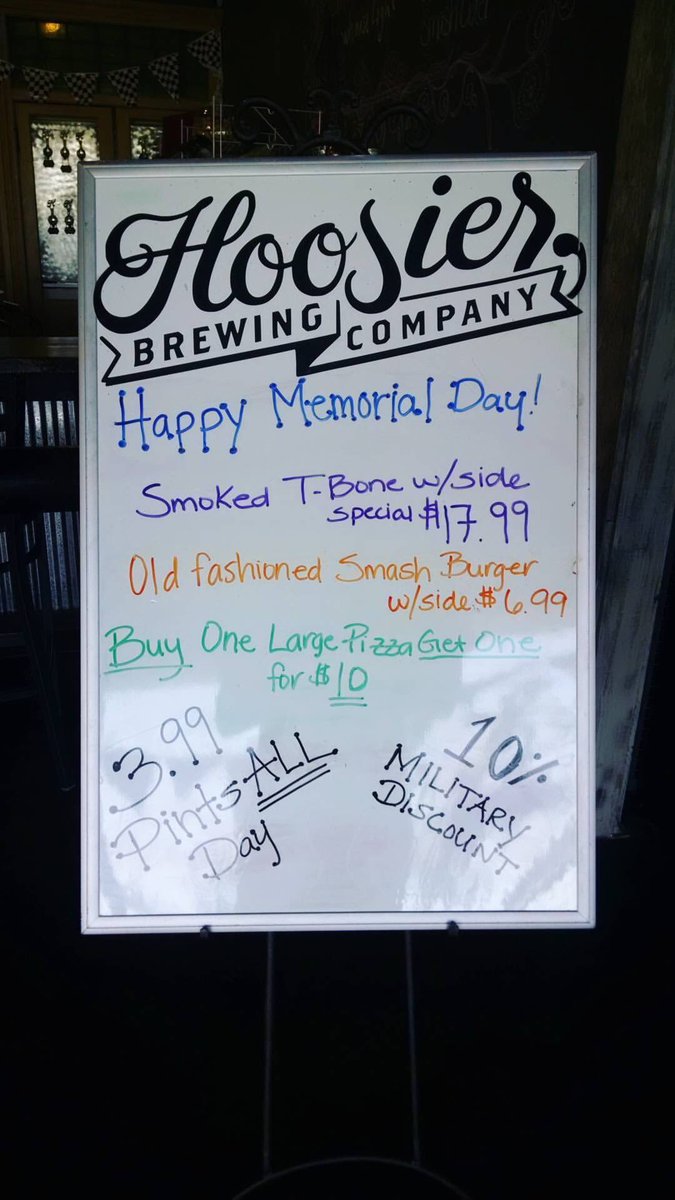 Hoosier
BREWING COMPANY
Happy Memorial Day!
Smoked T-Bone w/side
special $17.99
Old fashioned Smash Burger
w/side $6.99
Buy One Large Pizza Get One
for $10
3.99
Pints ALL
Day
10%
MILITARY
DISCOUNT